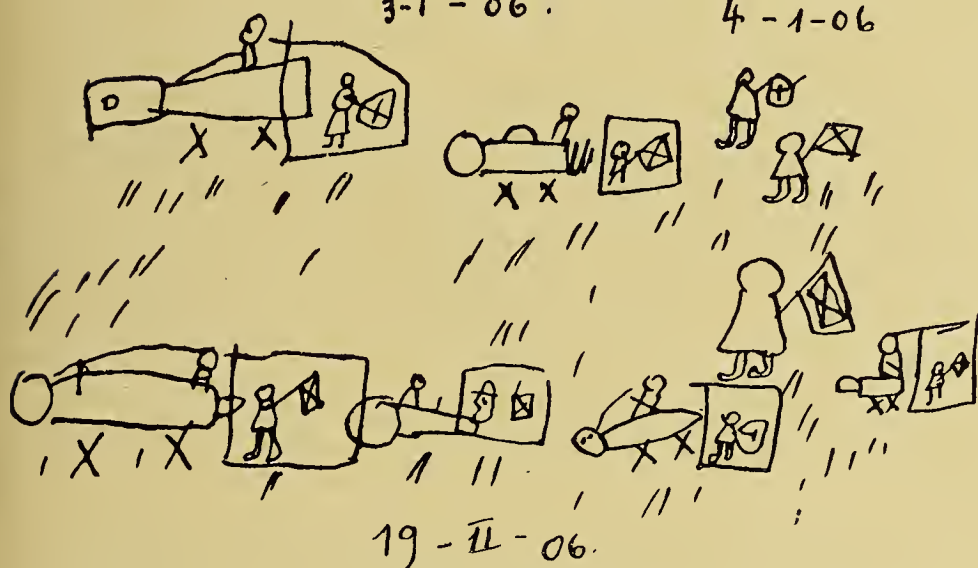 3-1-06. 4-1-06
19-II-06.